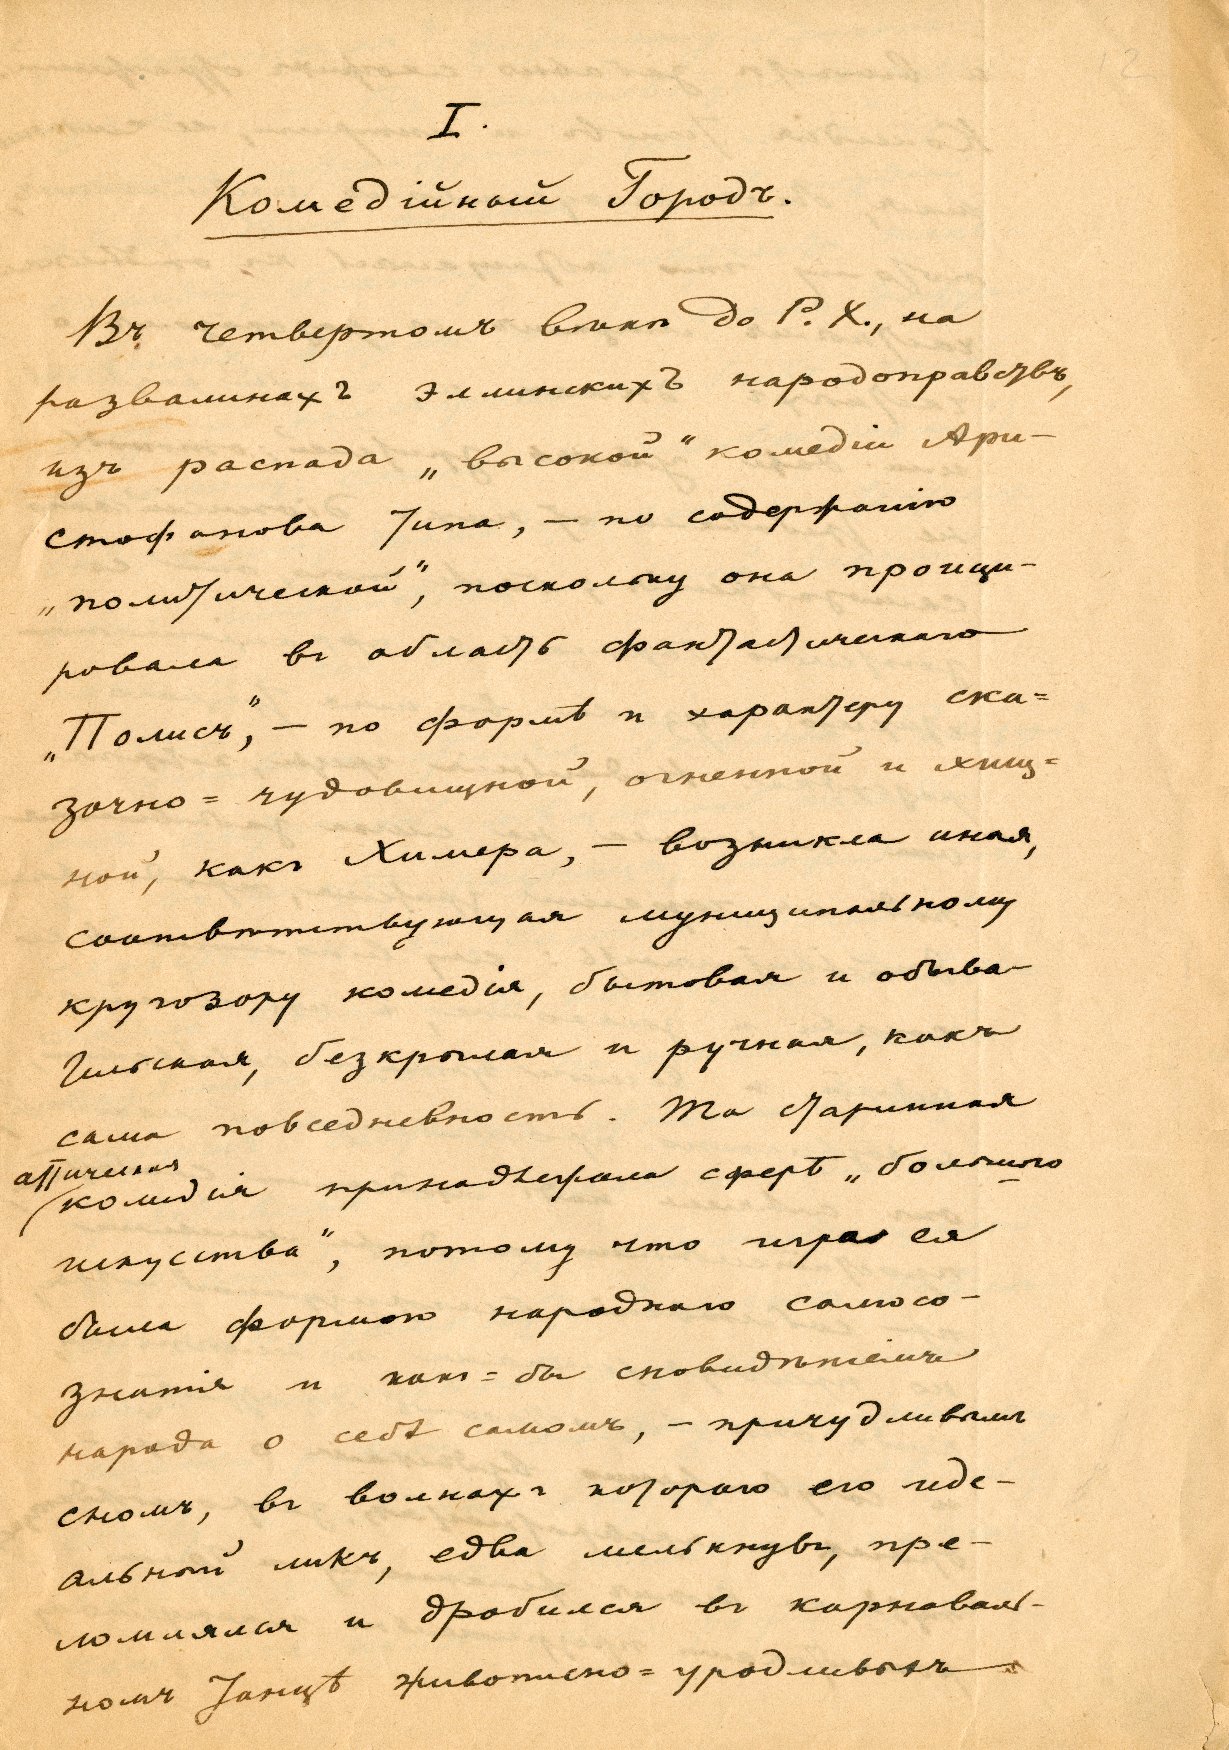 I.
Комедійный Городъ.
Въ четвертомъ вѣкѣ до Р. Х., на
развалинахъ эллинскихъ народоправствъ,
изъ распада „высокой“ комедіи Ари-
стофанова типа, — по содержанію
„политической“, поскольку она проици-
ровала въ область фантастическаго
„Полисъ“, — по формѣ и характеру ска=
зочно=чудовищной, огненной и хищ=
ной, какъ Химера, — возникла иная,
соотвѣтствующая муниципальному
кругозору комедія, бытовая и обыва-
тельская, безкрылая и ручная, какъ
сама повседневность. Та старинная
аттическая
комедія принадлежала сферѣ „большого
искусства“, потому что игра ея
была формою народнаго самосо-
знанія и какъ=бы сновидѣніемъ
народа о себѣ самомъ, — причудливымъ
сномъ, въ волнахъ котораго его иде-
альный ликъ, едва мелькнувъ, пре-
ломлялся и дробился въ карнаваль-
номъ танцѣ живописно=уродливыхъ